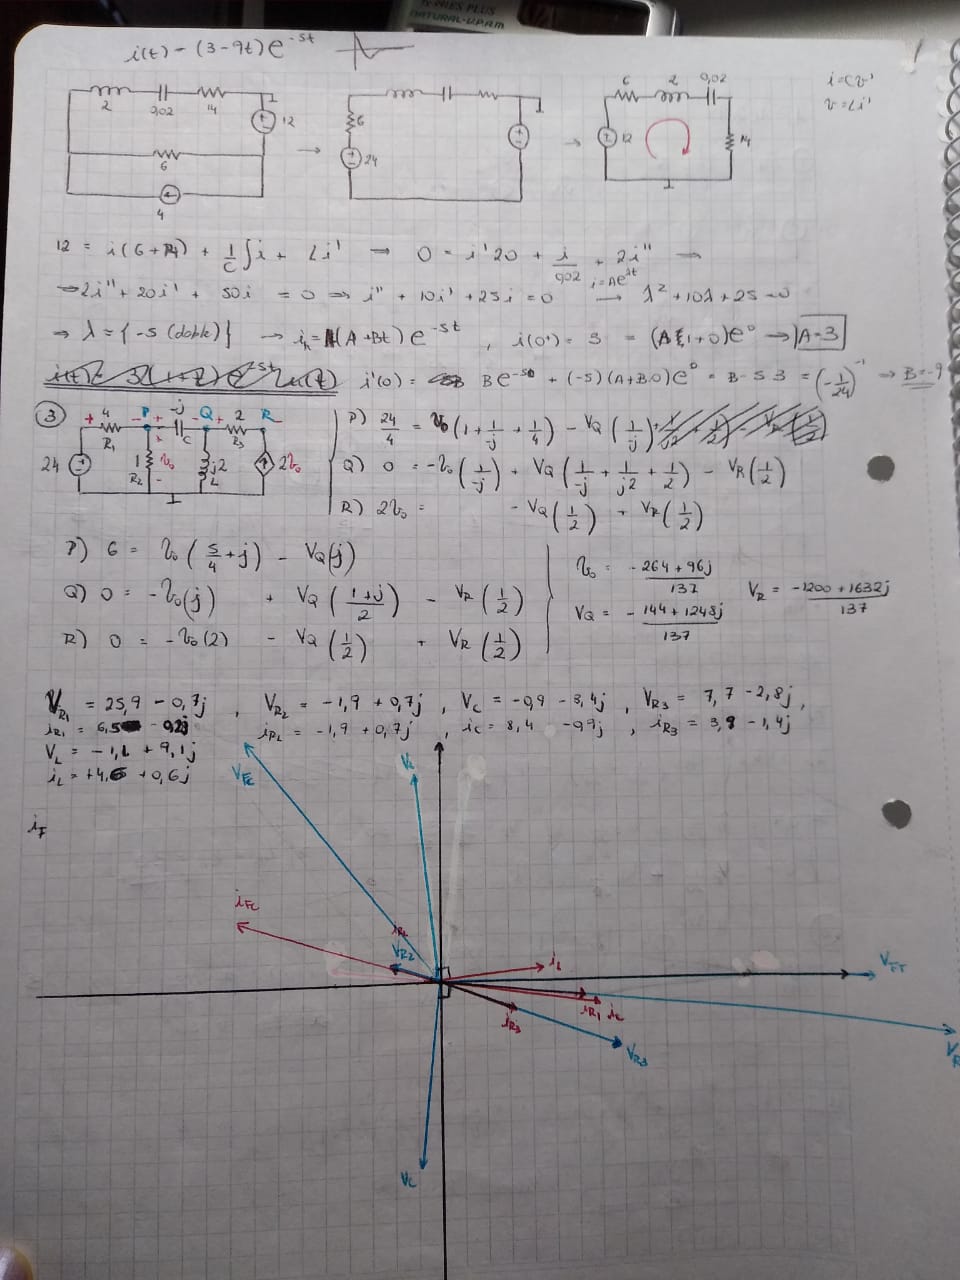 X-PRES PLUS
NATURAL-V.P.A.M.
i(t) = (3-9t)e^-5t
2 0,02 14 12 6 4
6 24
6 2 0,02 12 14
i=Cv'
v=Li'
12 = i(6+R4) + 1/C ∫i + Li' → 0 = i'20 + i/0,02 + 2i'' →
→ 2i'' + 20i' + 50i = 0 ⇒ i'' + 10i' + 25i = 0 i=Ae^λt → λ² + 10λ + 25 = 0
⇒ λ = {-5 (doble)} → i_h = (A+Bt) e^-5t , i(0+) = 3 = (A+0)e^0 → A=3
i'(0) = B e^-50 + (-5)(A+B0)e^0 = B - 5 3 = (-1/24)^-1 → B=-9
③ + 4 - P -j Q 2 R
R1 C R3
24 1 R2 v0 j2 L 2v0
P) 24/4 = v0(1 + 1/-j + 1/4) - VQ(1/-j)
Q) 0 = -v0(1/-j) + VQ(1/-j + 1/j2 + 1/2) - VR(1/2)
R) 2v0 = - VQ(1/2) + VR(1/2)
P) 6 = v0(5/4 + j) - VQ(j)
Q) 0 = -v0(j) + VQ((1+j)/2) - VR(1/2)
R) 0 = -v0(2) - VQ(1/2) + VR(1/2)
v0 = -264+96j/137
VQ = -144+1248j/137
VR = -1200+1632j/137
VR1 = 25,9 - 0,7j , VR2 = -1,9 + 0,7j , VC = -0,9 - 8,4j , VR3 = 7,7 - 2,8j ,
iR1 = 6,5 - 0,2j iR2 = -1,9 + 0,7j , iC = 8,4 - 0,9j , iR3 = 3,9 - 1,4j
VL = -1,1 + 9,1j
iL = +4,6 + 0,6j
VFC
VL
iF
iFC
iR2
VR2
iL
VFT
iR1 iC
iR3
VR3
VR
VC